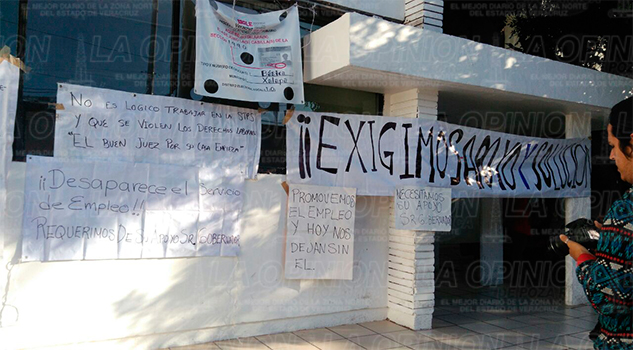 No es logico trabajar en la STPS
y que se violen los derechos laborales
"El buen juez por su casa empieza"
¡¡Desaparece el Servicio
de Empleo!!
Requerimos De Su Apoyo Sr/Gobernador
Promovemos
el empleo
y hoy nos
dejan sin
el.
¡¡Exigimos apoyo y solución
Necesitamos
su apoyo
Sr/Gobernador
Xalapa
LA OPINIÓN
EL MEJOR DIARIO DE LA ZONA NORTE
DEL ESTADO DE VERACRUZ